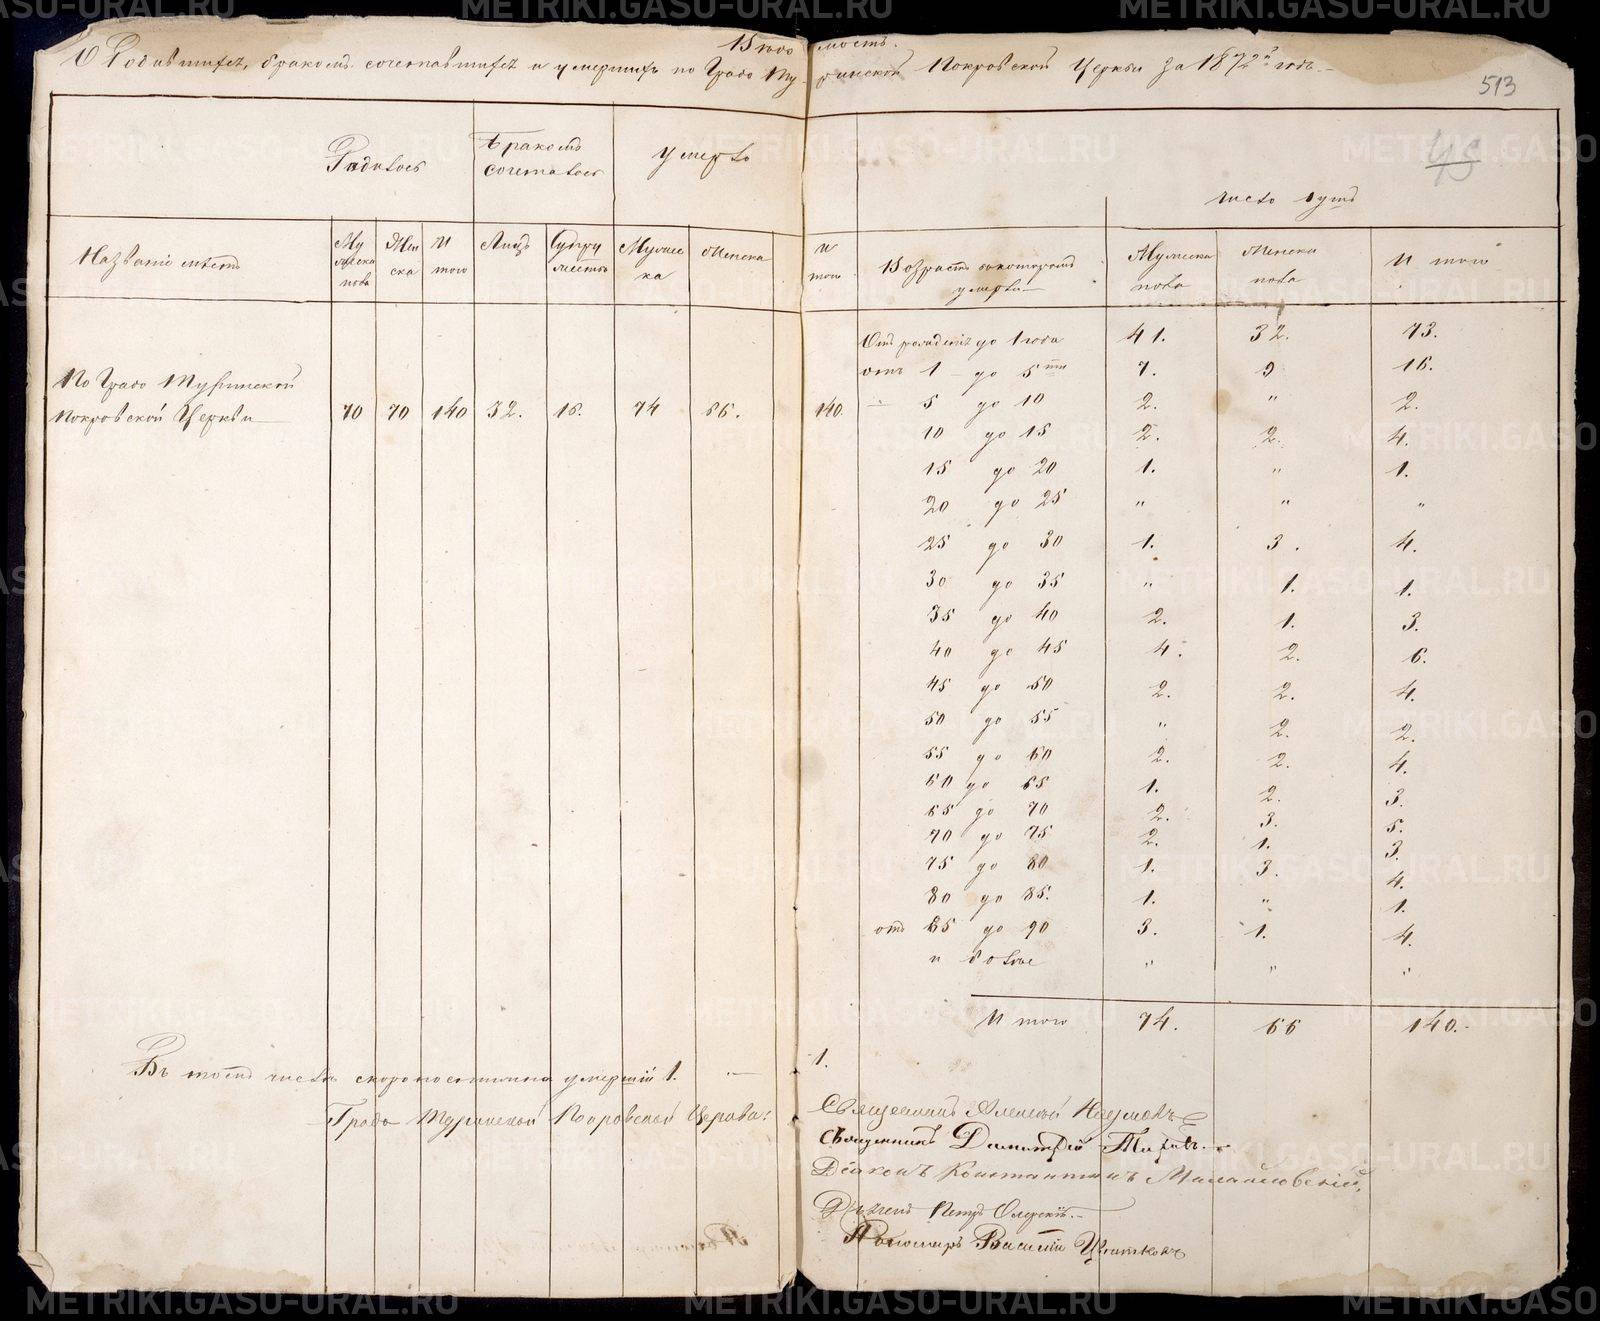 Вѣдомость
О Родившихся, бракомъ сочетавшихся и умершихъ по Градо Туринской Покровской Церкви за 1872й годъ.
513
45
Родилось
Бракомъ сочеталось
Умерло
число душъ
Названіе мѣстъ
Мужеска пола
Женска
Итого
Лицъ
Супружествъ
Мужеска
Женска
Итого
Возрастъ въ которомъ умерли
Мужеска пола
Женска пола
Итого
По Градо Туринской
Покровской Церкви 70 70 140 32. 16. 74 66. 140.
Отъ рожденія до 1 года 41. 32. 73.
отъ 1 до 5ти 7. 9 16.
5 до 10 2. " 2.
10 до 15 2. 2. 4.
15 до 20 1. " 1.
20 до 25 " " "
25 до 30 1. 3. 4.
30 до 35 " 1. 1.
35 до 40 2. 1. 3.
40 до 45 4. 2. 6.
45 до 50 2. 2. 4.
50 до 55 " 2. 2.
55 до 60 2. 2. 4.
60 до 65 1. 2. 3.
65 до 70 2. 3. 5.
70 до 75 2. 1. 3.
75 до 80 1. 3. 4.
80 до 85. 1. " 1.
отъ 85 до 90 3. 1. 4.
и болѣе " " "
Итого 74. 66 140.
Въ томъ числѣ скоропостижно умершій 1. — 1.
Градо Туринской Покровской Церкви:
Священникъ Алексѣй Наумовъ
Священникъ Димитрій
Діаконъ Константинъ
Петръ
Пономарь Василій
METRIKI.GASO-URAL.RU